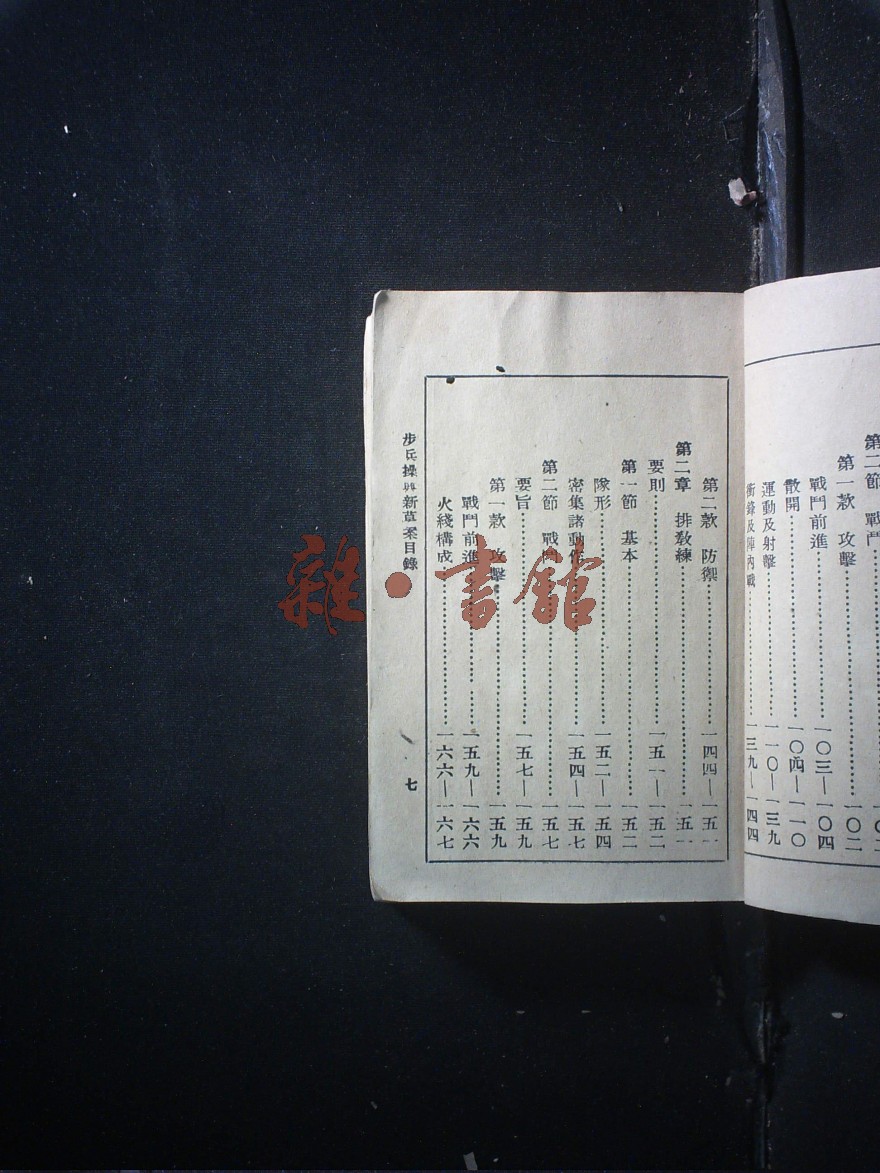 第二節 戰鬥
第一款 攻擊……一〇二
戰鬥前進……一〇三—一〇四
散開……一〇四—一一〇
運動及射擊……一一〇—一三九
衝鋒及陣內戰……一三九—一四四
第二款 防禦……一四四—一五一
第二章 排教練……一五一
要則……一五一—一五二
第一節 基本……一五二
隊形……一五二—一五四
密集諸動作……一五四—一五七
第二節 戰鬥……一五七
要旨……一五七—一五九
第一款 攻擊……一五九
戰鬥前進……一五九—一六六
火綫構成……一六六—一六七
步兵操典新草案目錄
七
雜·書館